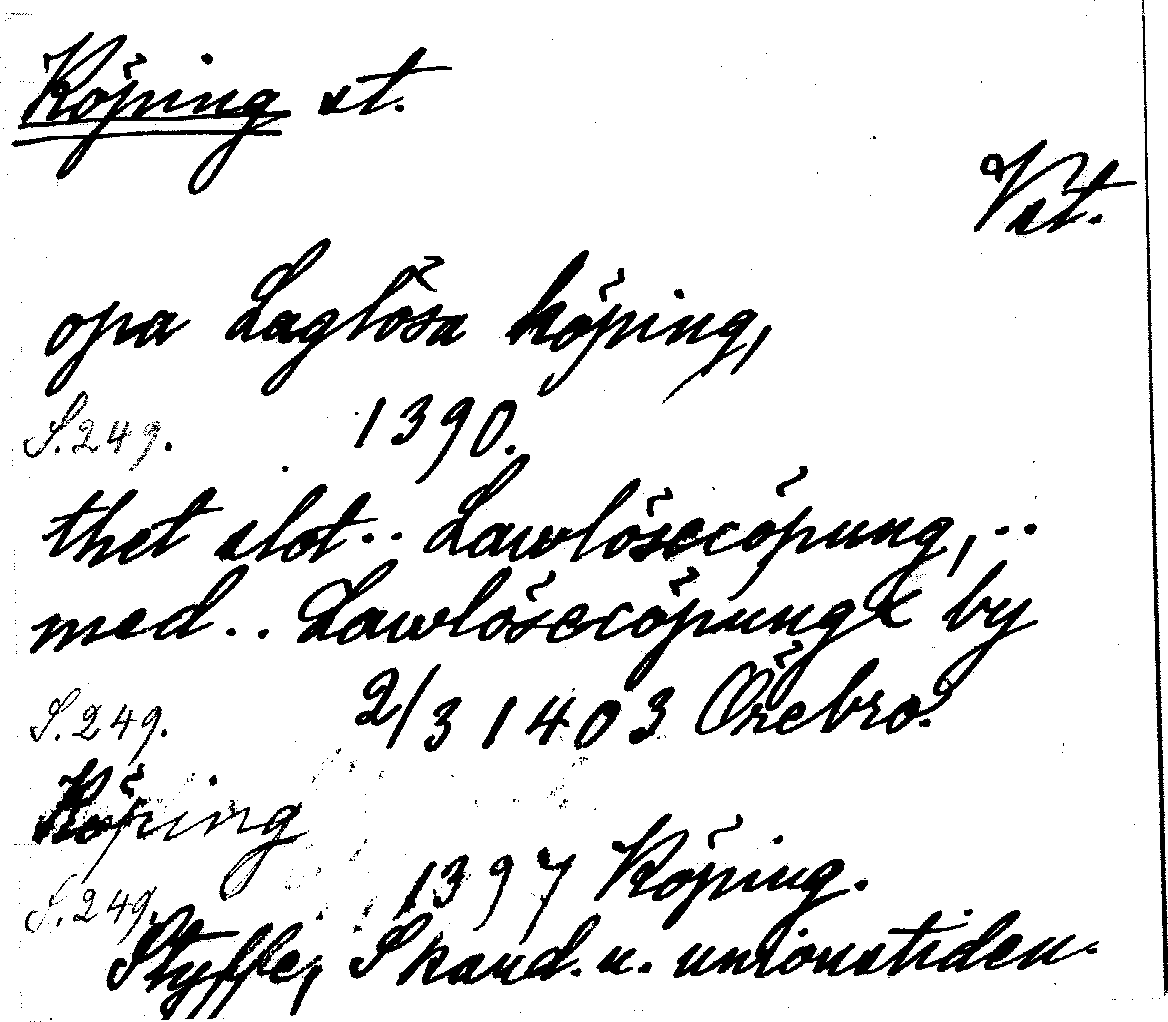 Köping st.
Vst.
opa Laglösa köping,
S. 249. 1390.
thet slot.. Lawlösecöpung,..
med.. Lawlösecöpungx by
S. 249. 2/3 1403 Örebro.
Köping
S. 249. 1397 Köping.
Styffe, Skand. u. unionstiden.